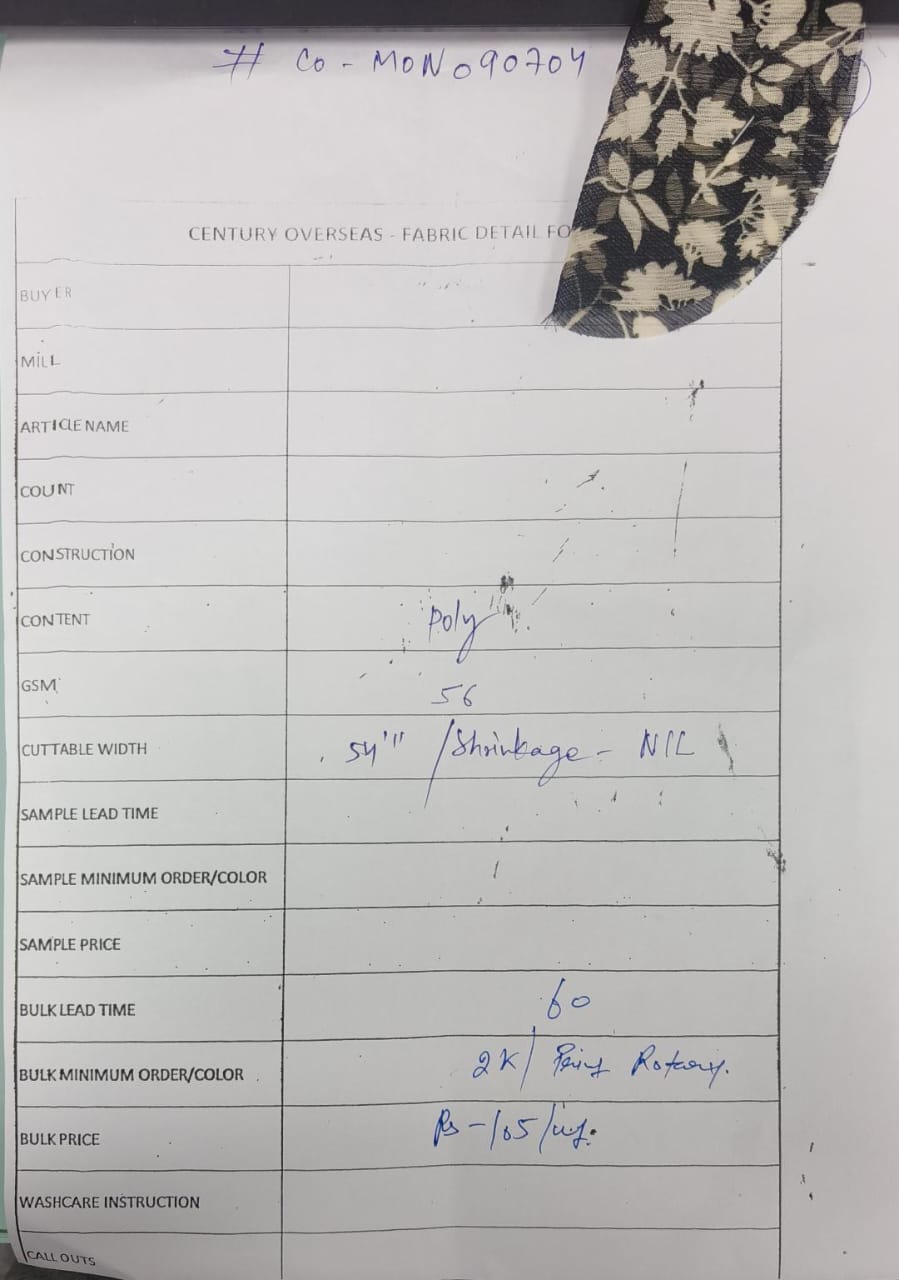 # CO - MON090704
CENTURY OVERSEAS - FABRIC DETAIL FO
BUYER
MILL
ARTICLE NAME
COUNT
CONSTRUCTION
CONTENT Poly
GSM 56
CUTTABLE WIDTH 54'" /Shrinkage - NIL
SAMPLE LEAD TIME
SAMPLE MINIMUM ORDER/COLOR
SAMPLE PRICE
BULK LEAD TIME 60
BULK MINIMUM ORDER/COLOR 2K/ Rotary.
BULK PRICE Rs - 105/
WASHCARE INSTRUCTION
CALL OUTS